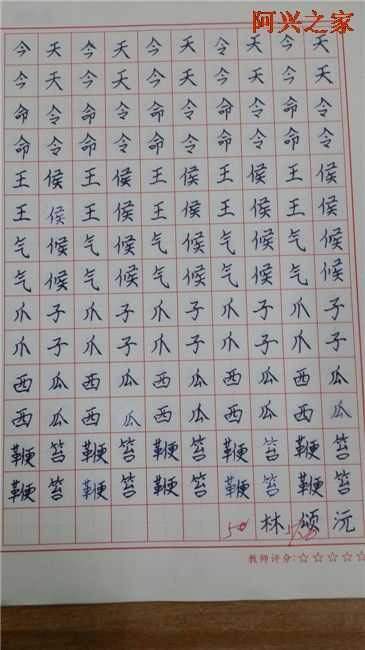 阿兴之家
今天今天今天令天今天
今天今天今天今天今天
命令命令命令命令命令
命令命令命令命令命令
王侯王侯王侯王侯王侯
王侯王侯王侯王侯王侯
气候气候气候气候气候
气候气候气候气候气候
爪子爪子爪子爪子爪子
爪子爪子爪子爪子爪子
西瓜西瓜西瓜西瓜西瓜
西瓜西瓜西瓜西瓜西瓜
鞭笞鞭笞鞭笞鞭笞鞭笞
鞭笞鞭笞鞭笞鞭笞鞭笞
林颂沅
教师评分:☆☆☆☆☆